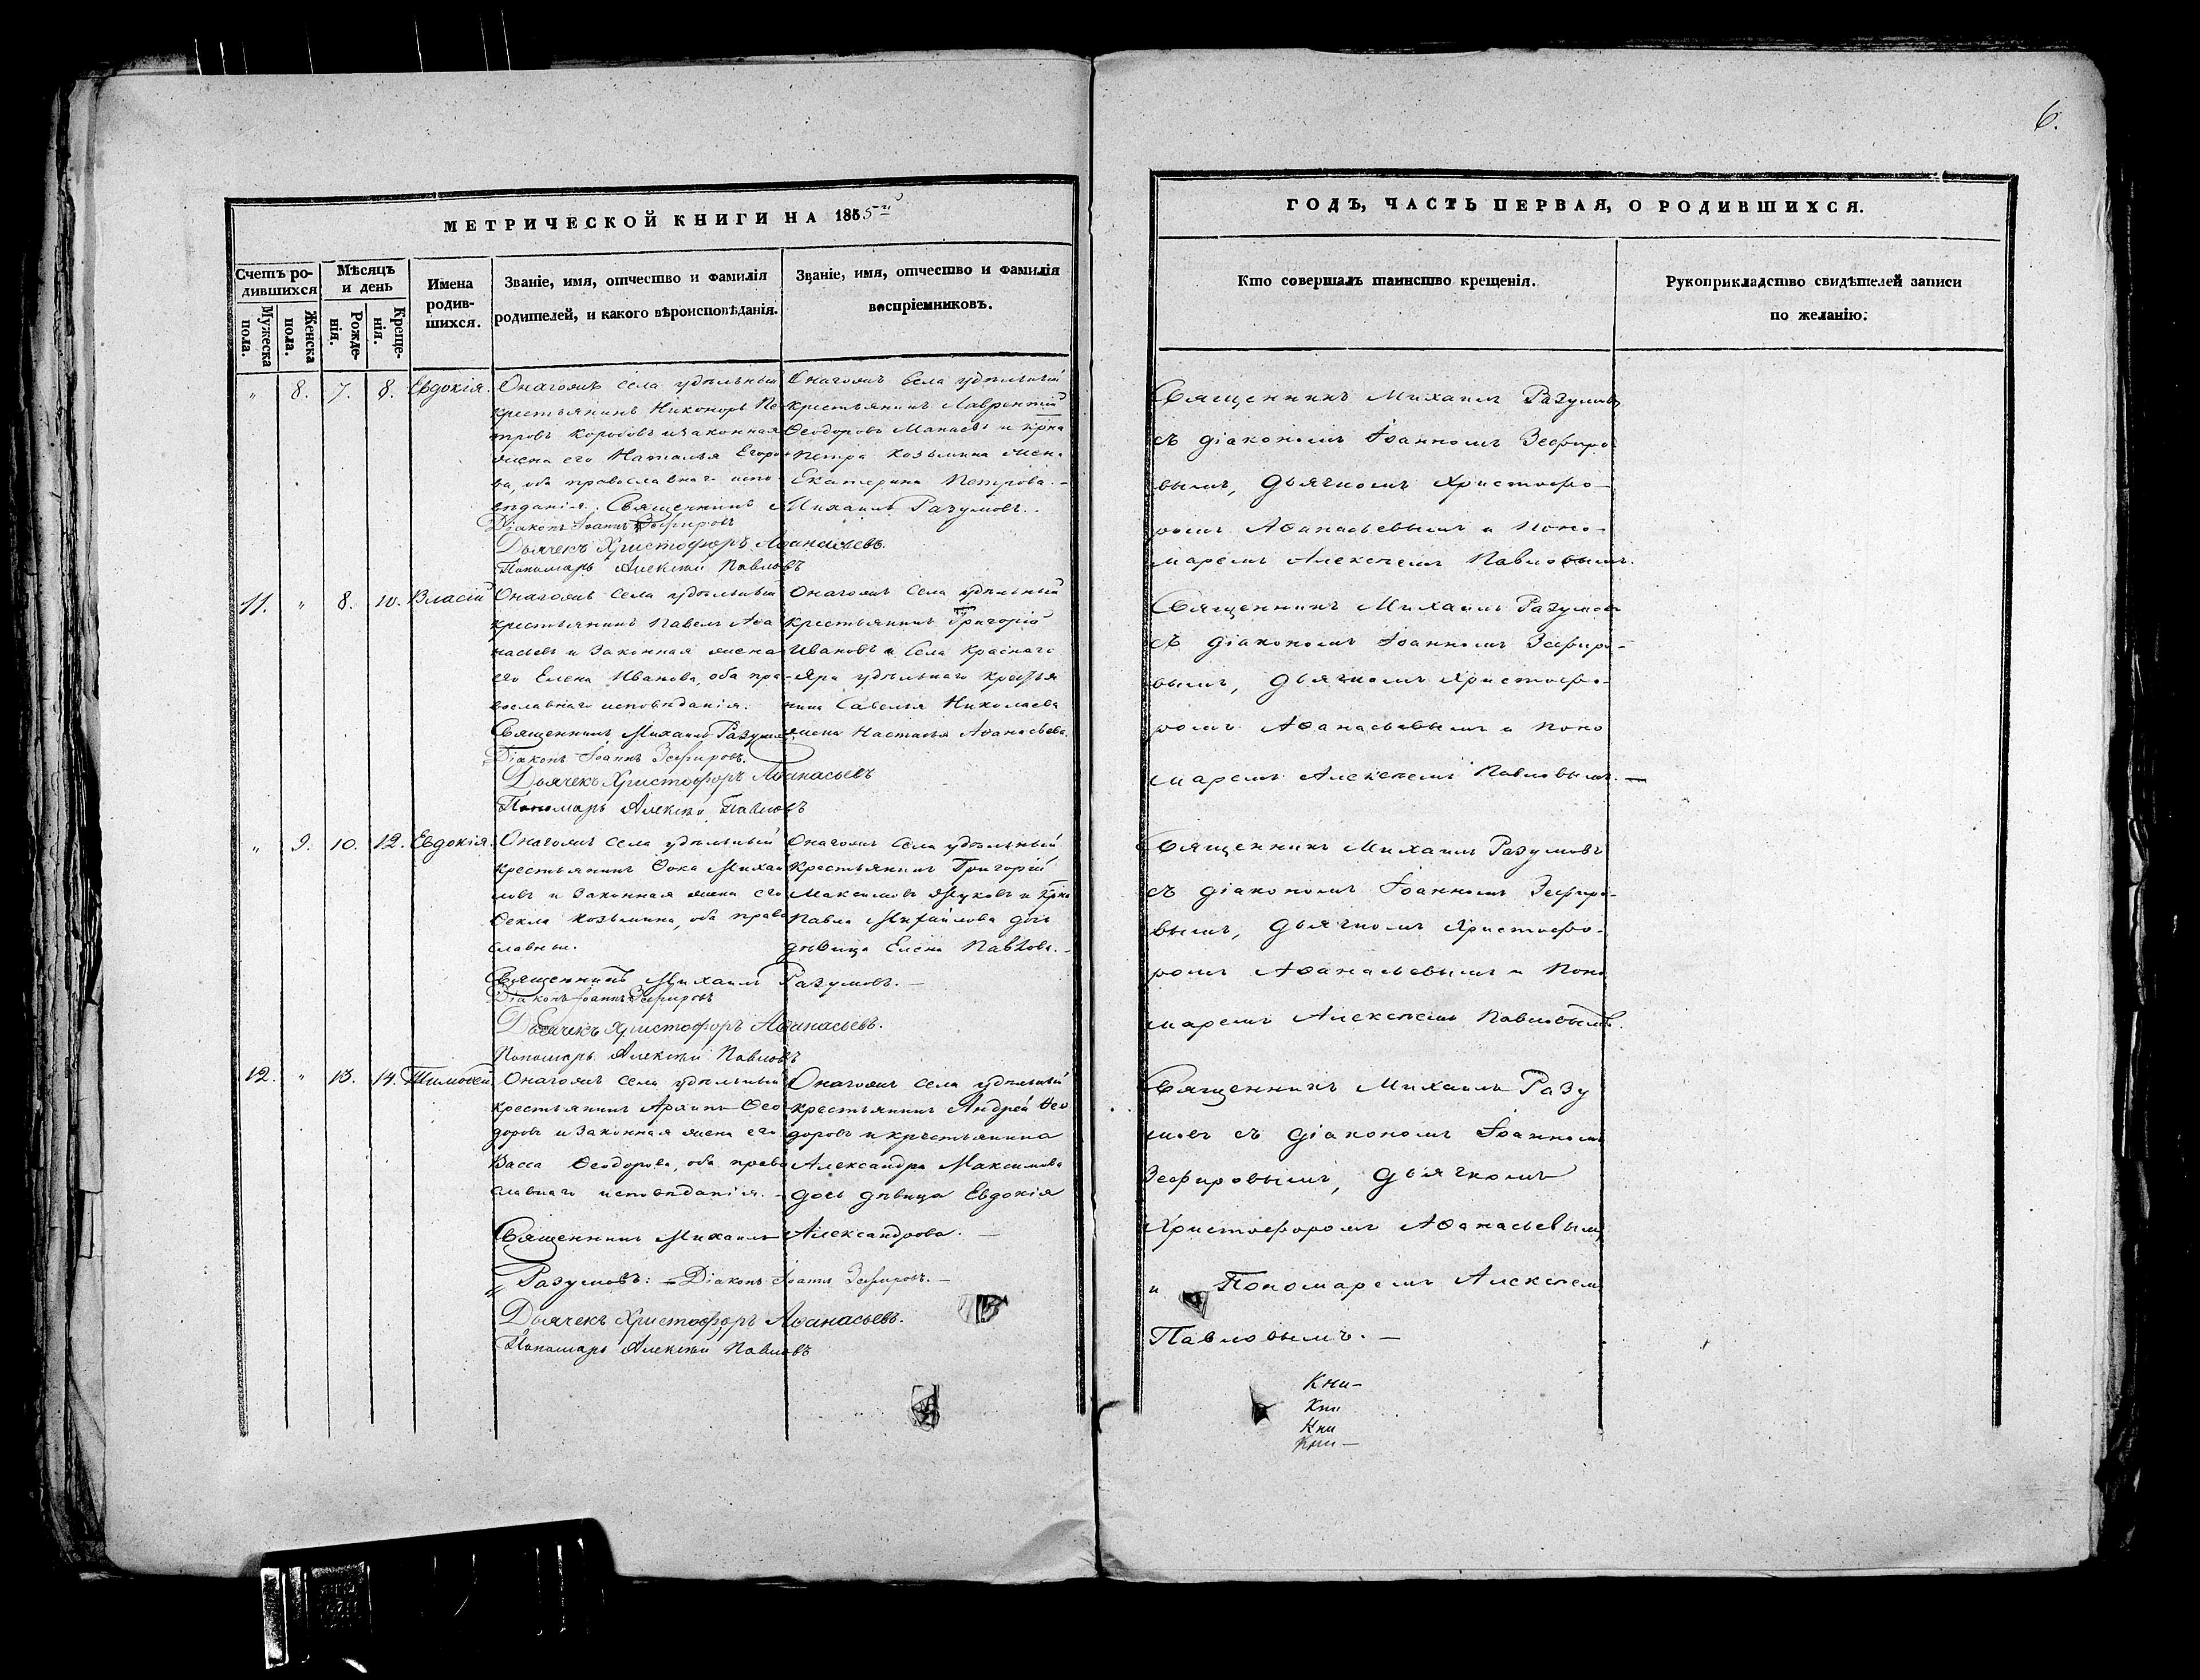 6.
МЕТРИЧЕСКОЙ КНИГИ НА 1855й
Счетъ родившихся
Мѣсяцъ и день
Мужеска пола.
Женска пола.
Рожденія.
Крещенія.
Имена родившихся.
Званіе, имя, отчество и фамилія
родителей, и какого вѣроисповѣданія.
Званіе, имя, отчество и фамилія
воспріемниковъ.
„ 8. 7. 8. Евдокія.
Онагожъ села удѣльный
крестьянинъ Никоноръ Пе
тровъ Коробовъ и законная
жена его Наталья Егоро
ва, оба православнаго испо
вѣданія. Священникъ Михаилъ Разумовъ.
Діаконъ Іоаннъ Зефировъ
Дьячекъ Христофоръ Аѳанасьевъ.
Пономарь Алексѣй Павловъ
Онагожъ села удѣльный
крестьянинъ Лаврентій
Ѳеодоровъ Манаевъ и крна
Петра Козьмина жена
Екатерина Петрова. –
11. „ 8. 10. Власій
Онагожъ села удѣльный
крестьянинъ Павелъ Аѳа
насьевъ и законная жена
его Елена Иванова, оба пра-
вославнаго исповѣданія.
Священникъ Михаилъ Разумовъ
Діаконъ Іоаннъ Зефировъ.
Дьячекъ Христофоръ Аѳанасьевъ
Пономарь Алексѣй Павловъ
Онагожъ села удѣльный
крестьянинъ Григорій
Ивановъ и села Краснаго
Яра удѣльнаго крестья
нина Савелья Николаева
жена Настасья Аѳанасьева.
„ 9. 10. 12. Евдокія.
Онагожъ села удѣльный
крестьянинъ Ѳока Михаи
ловъ и законная жена его
Ѳекла Козьмина, оба право
славные.
Священникъ Михаилъ Разумовъ. –
Діаконъ Іоаннъ Зефировъ
Дьячекъ Христофоръ Аѳанасьевъ.
Пономарь Алексѣй Павловъ
Онагожъ села удѣльный
крестьянинъ Григорій
Максимовъ Жуковъ и крна
Павла Михайлова дочь
дѣвица Елена Павлова. –
12. „ 13. 14. Тимоѳей
Онагожъ села удѣльный
крестьянинъ Архипъ Ѳео
доровъ и законная жена его
Васса Ѳеодорова, оба право
славнаго исповѣданія. –
Священникъ Михаилъ
Разумовъ: – Діаконъ Іоаннъ Зефировъ. –
Дьячекъ Христофоръ Аѳанасьевъ.
Пономарь Алексѣй Павловъ
Онагожъ села удѣльный
крестьянинъ Андрей Ѳео
доровъ и крестьянина
Александра Максимова
дочь дѣвица Евдокія
Александрова. –
ГОДЪ, ЧАСТЬ ПЕРВАЯ, О РОДИВШИХСЯ.
Кто совершалъ таинство крещенія.
Рукоприкладство свидѣтелей записи
по желанію.
Священникъ Михаилъ Разумовъ
съ діакономъ Іоанномъ Зефиро
вымъ, дьячкомъ Христофо-
ромъ Аѳанасьевымъ и поно-
маремъ Алексѣемъ Павловымъ.
Священникъ Михаилъ Разумовъ
съ діакономъ Іоанномъ Зефиро-
вымъ, дьячкомъ Христофо-
ромъ Аѳанасьевымъ и поно
маремъ Алексѣемъ Павловымъ. –
Священникъ Михаилъ Разумовъ
съ діакономъ Іоанномъ Зефиро-
вымъ, дьячкомъ Христофо-
ромъ Аѳанасьевымъ и поно
маремъ Алексѣемъ Павловымъ.
Священникъ Михаилъ Разу
мовъ съ діакономъ Іоанномъ
Зефировымъ, дьячкомъ
Христофоромъ Аѳанасьевымъ
и Пономаремъ Алексѣемъ
Павловымъ. –
Кни-
Кни
Кни
Кни –